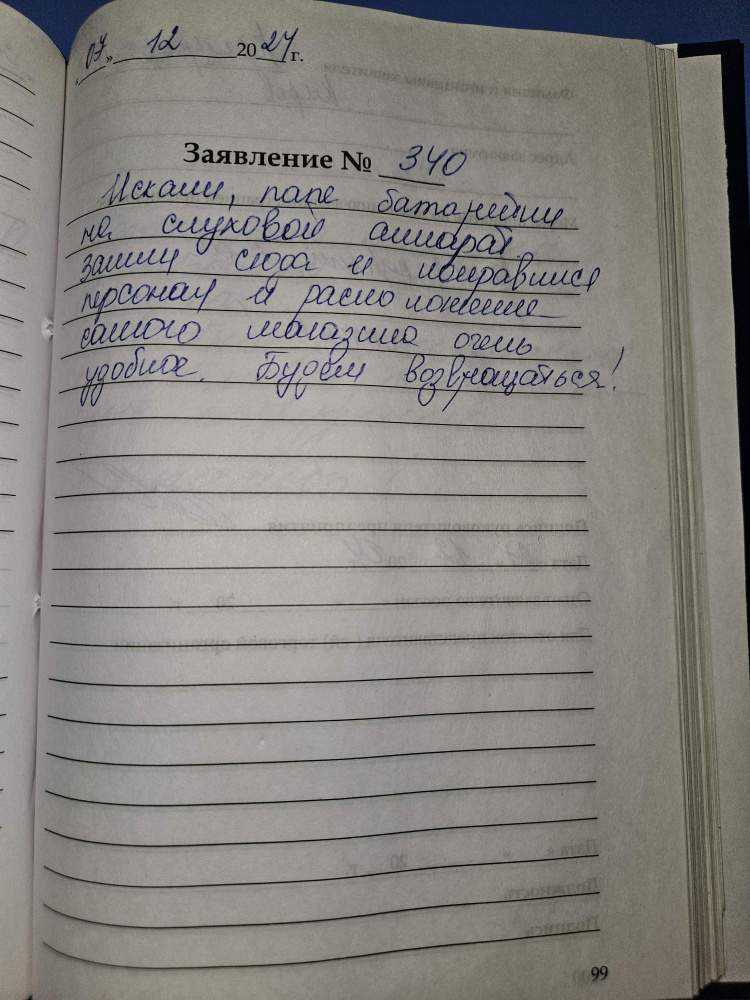 «07» 12 2024 г.
Заявление № 340
Искали, папе батарейки
на слуховой аппарат
зашли сюда и понравился
персонал и расположение
самого магазина очень
удобное. Будем возвращаться!
99